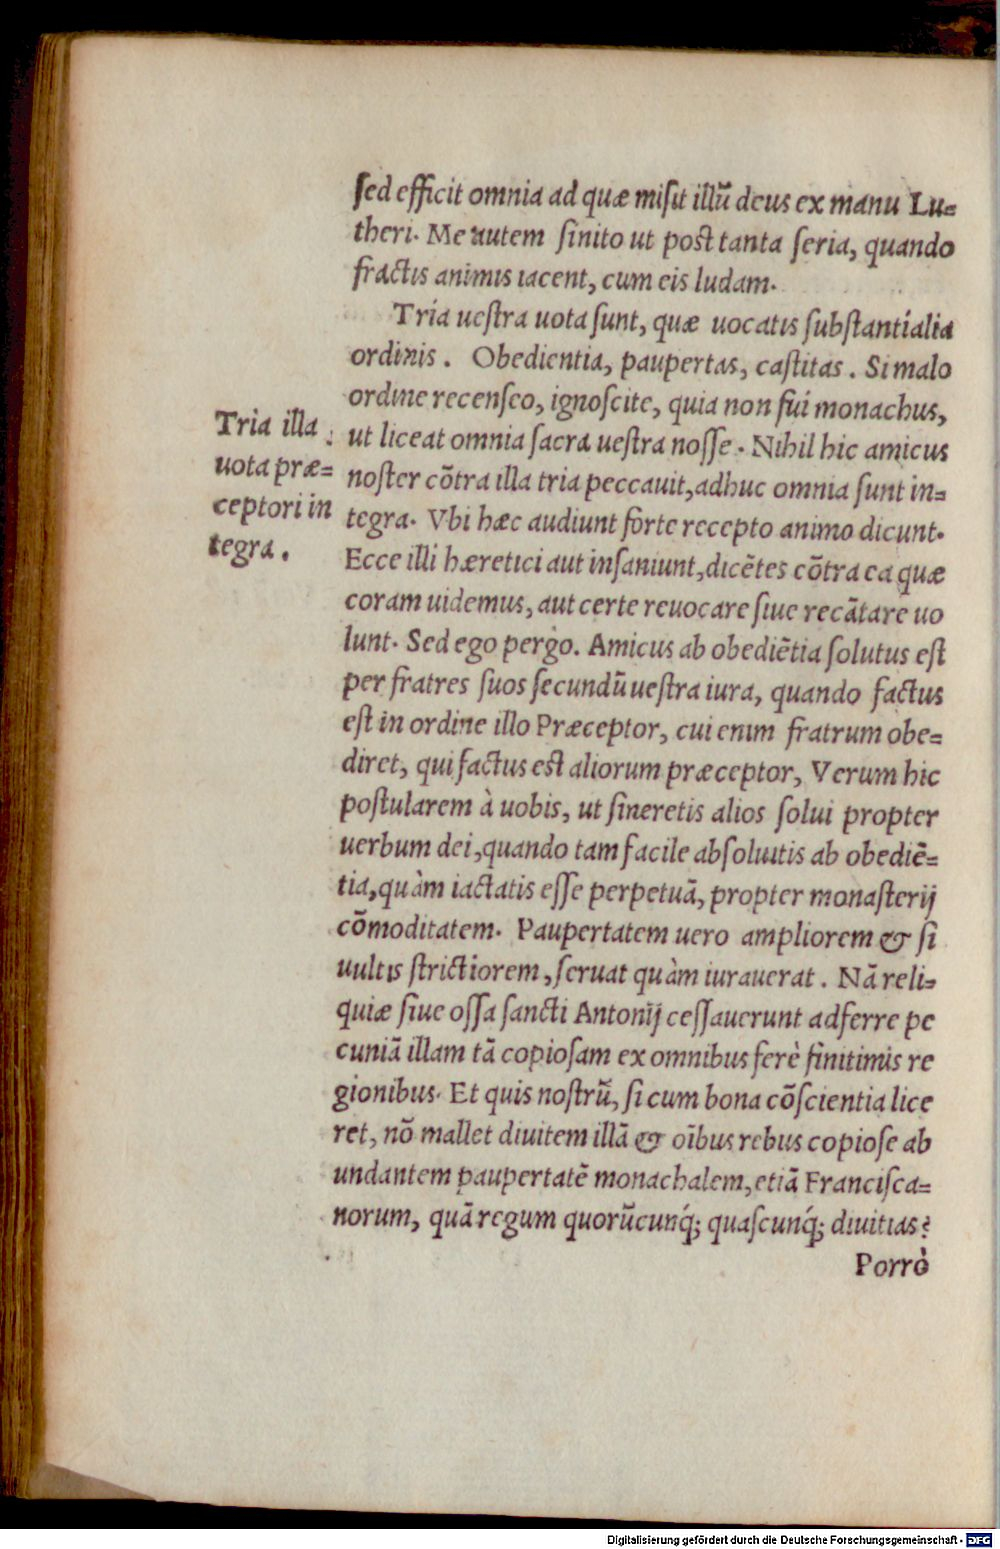 ſed efficit omnia ad quæ miſit illũ deus ex manu Lu-
theri. Me autem ſinito ut poſt tanta ſeria, quando
fractis animis iacent, cum eis ludam.
Tria ueſtra uota ſunt, quæ uocatis ſubſtantialia
ordinis. Obedientia, paupertas, caſtitas. Si malo
ordine recenſeo, ignoſcite, quia non fui monachus,
ut liceat omnia ſacra ueſtra noſſe. Nihil hic amicus
noſter cõtra illa tria peccauit, adhuc omnia ſunt in-
tegra. Vbi hæc audiunt forte recepto animo dicunt.
Ecce illi hæretici aut inſaniunt, dicẽtes cõtra ea quæ
coram uidemus, aut certe reuocare ſiue recãtare uo
lunt. Sed ego pergo. Amicus ab obediẽtia ſolutus eſt
per fratres ſuos ſecundũ ueſtra iura, quando factus
eſt in ordine illo Præceptor, cui enim fratrum obe-
diret, qui factus eſt aliorum præceptor, Verum hic
poſtularem à uobis, ut ſineretis alios ſolui propter
uerbum dei, quando tam facile abſoluitis ab obediẽ-
tia, quàm iactatis eſſe perpetuã, propter monaſterij
cõmoditatem. Paupertatem uero ampliorem & ſi
uultis ſtrictiorem, ſeruat quàm iurauerat. Nã reli-
quiæ ſiue oſſa ſancti Antonij ceſſauerunt adferre pe
cuniã illam tã copioſam ex omnibus ferè finitimis re
gionibus. Et quis noſtrũ, ſi cum bona cõſcientia lice
ret, nõ mallet diuitem illã & oĩbus rebus copioſe ab
undantem paupertatẽ monachalem, etiã Franciſca-
norum, quã regum quorũcunq́; quaſcunq́; diuitias?
Porrò
Tria illa
uota præ-
ceptori in
tegra.
Digitalisierung gefördert durch die Deutsche Forschungsgemeinschaft - DFG